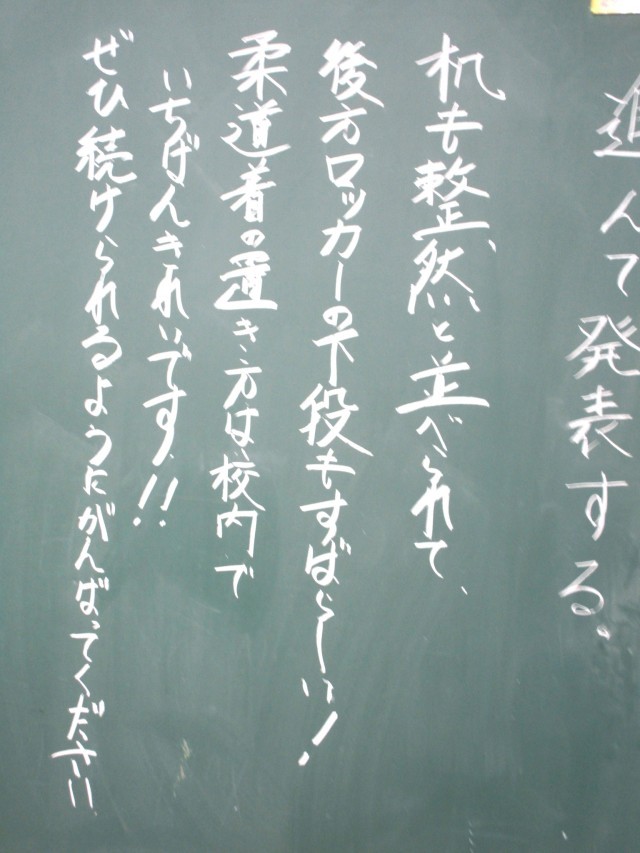 進んで発表する。
机も整然と並べられて、
後方ロッカーの下役もすばらしい!
柔道着の置き方は、校内で
いちばんきれいです!!
ぜひ続けられるようにがんばってください